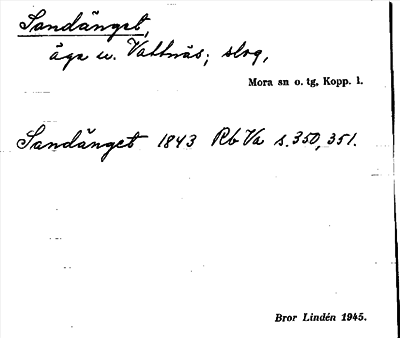 Sandänget,
äga u. Vattnäs; slog,
Mora sn o. tg, Kopp. l.
Sandänget 1843 Rb Va s. 350, 351.
Bror Lindén 1945.